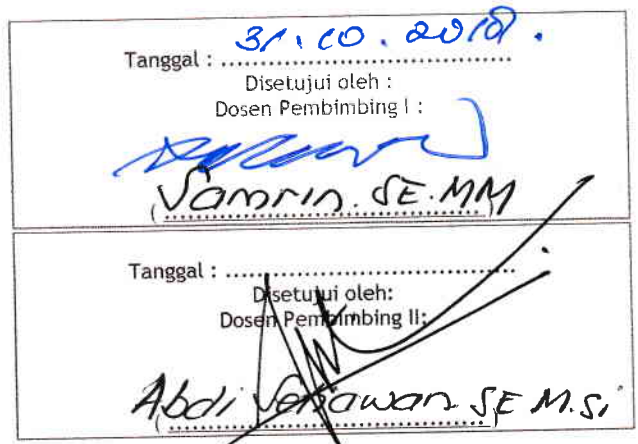 Tanggal : 31.10.2018.
Disetujui oleh :
Dosen Pembimbing I :
(Samrin. SE.MM)
Tanggal : ........................................
Disetujui oleh:
Dosen Pembimbing II:
(Abdi SE M.Si)